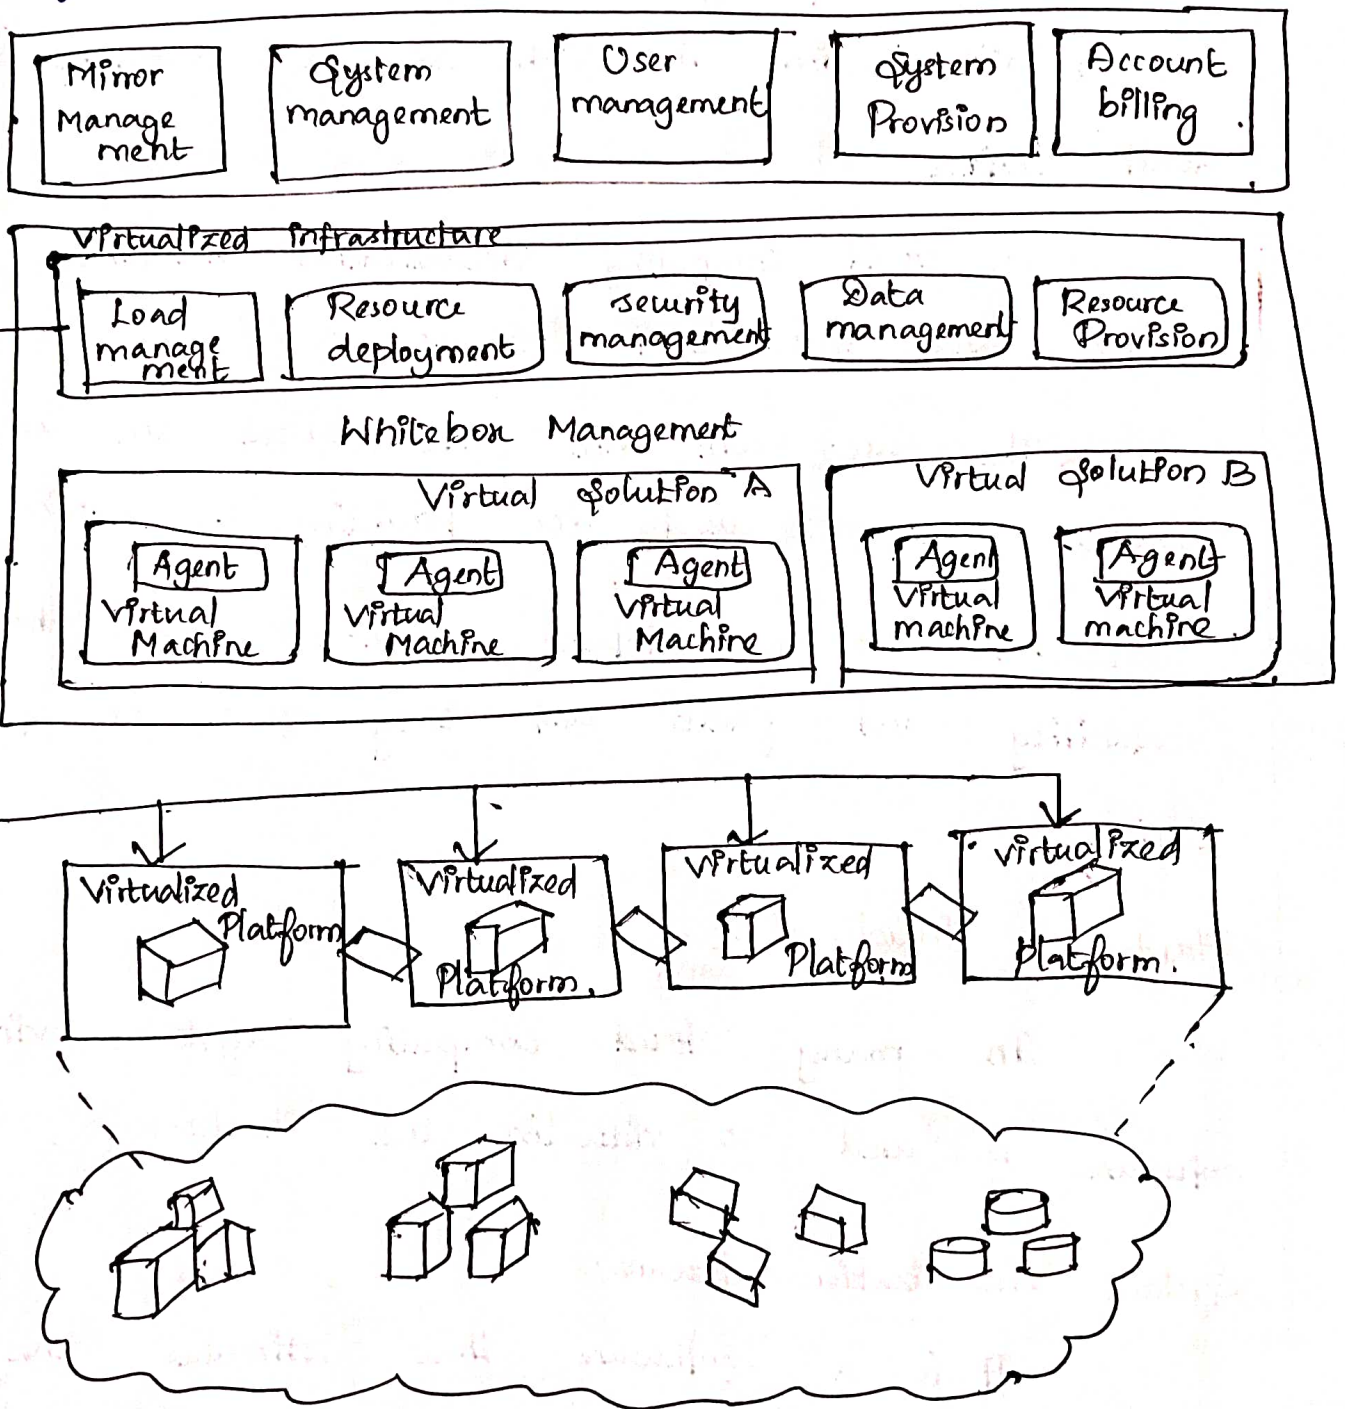 Mirror
Manage
ment
System
management
User
management
System
Provision
Account
billing
Virtualized infrastructure
Load
manage
ment
Resource
deployment
security
management
Data
management
Resource
Provision
Whitebox Management
Virtual Solution A
Agent
Virtual
Machine
Agent
Virtual
Machine
Agent
Virtual
Machine
Virtual Solution B
Agent
Virtual
machine
Agent
Virtual
machine
Virtualized
Platform
Virtualized
Platform.
Virtualized
Platform
Virtualized
Platform.